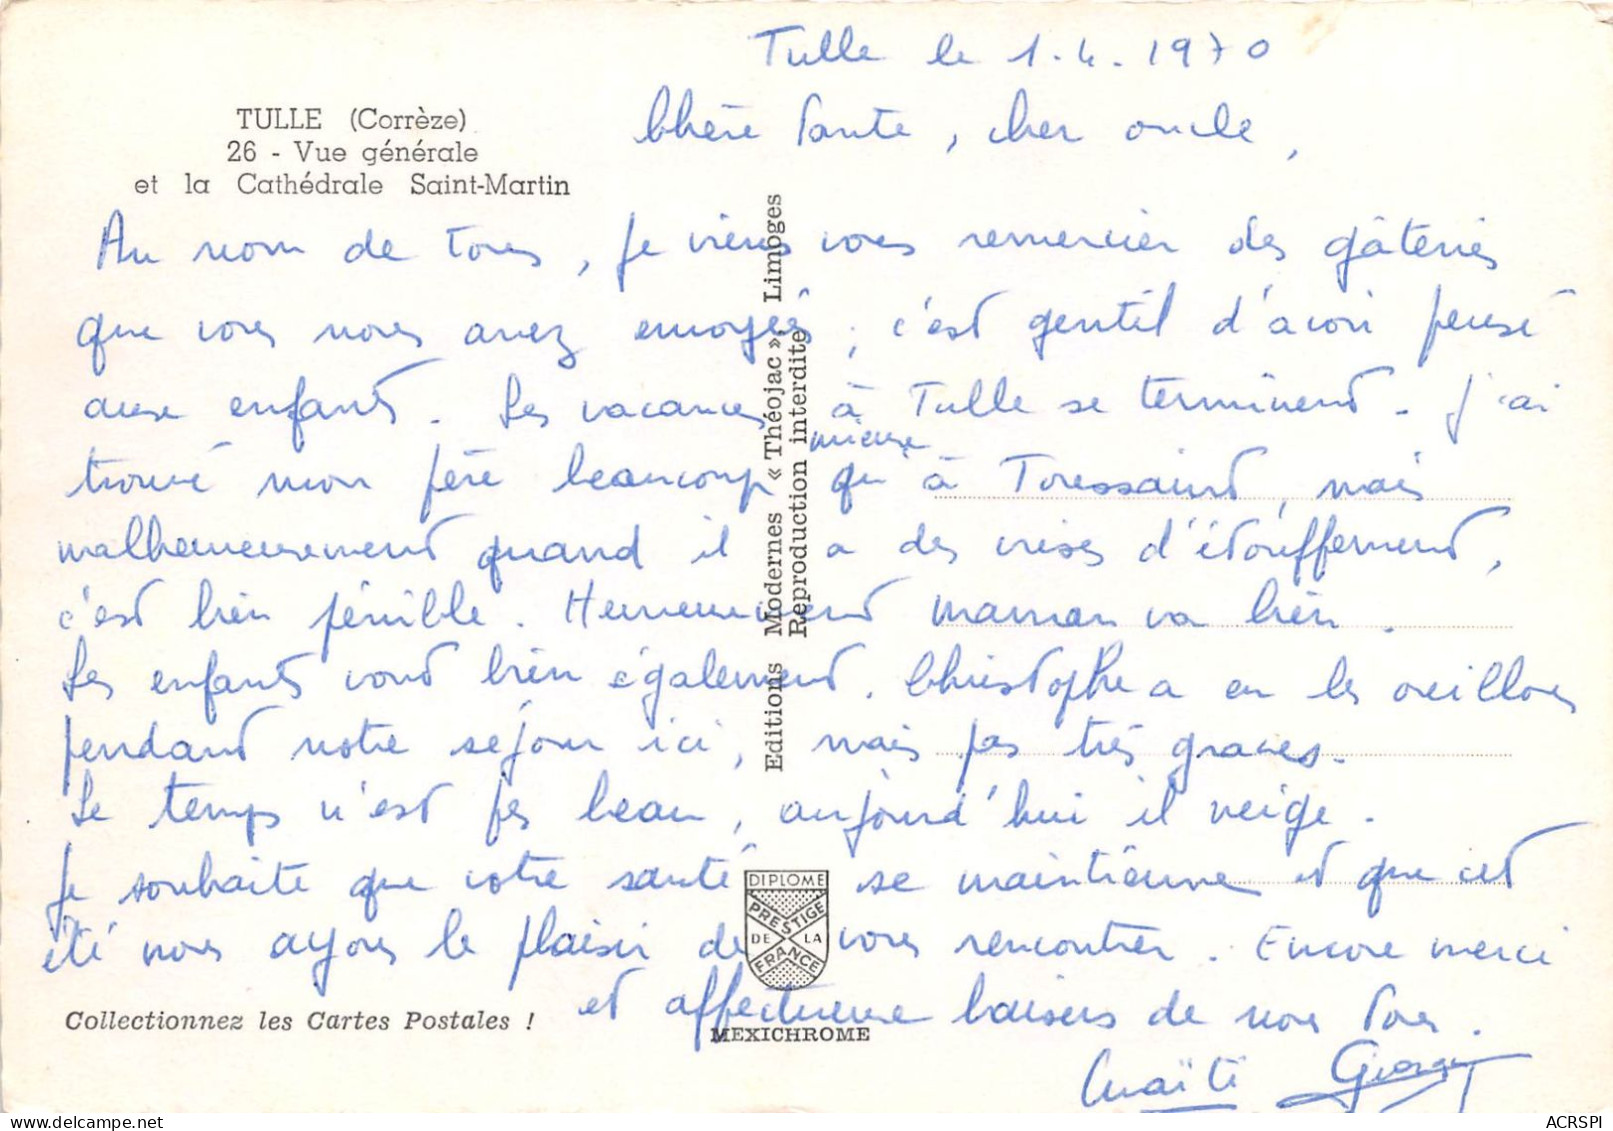 Tulle le 1.4.1970
TULLE (Corrèze)
26 - Vue générale
et la Cathédrale Saint-Martin
Chère Tante, cher oncle,
Au nom de tous, je viens vous remercier des gâteries
que vous nous avez envoyées, c'est gentil d'avoir pensé
aux enfants. Les vacances à Tulle se terminent. J'ai
trouvé mon père beaucoup mieux qu'à Toussaint, mais
malheureusement quand il a des crises d'étouffement,
c'est bien pénible. Heureusement maman va bien.
Les enfants vont bien également. Christophe a eu les oreillons
pendant notre séjour ici, mais pas très graves.
Le temps n'est pas beau, aujourd'hui il neige.
Je souhaite que votre santé se maintienne et que cet
été nous ayons le plaisir de vous rencontrer. Encore merci
et affectueux baisers de nous tous.
Maïté Georges
Editions Modernes « Théojac », Limoges
Reproduction interdite
DIPLOME
PRESTIGE
DE LA
FRANCE
Collectionnez les Cartes Postales !
MEXICHROME
ACRSPI